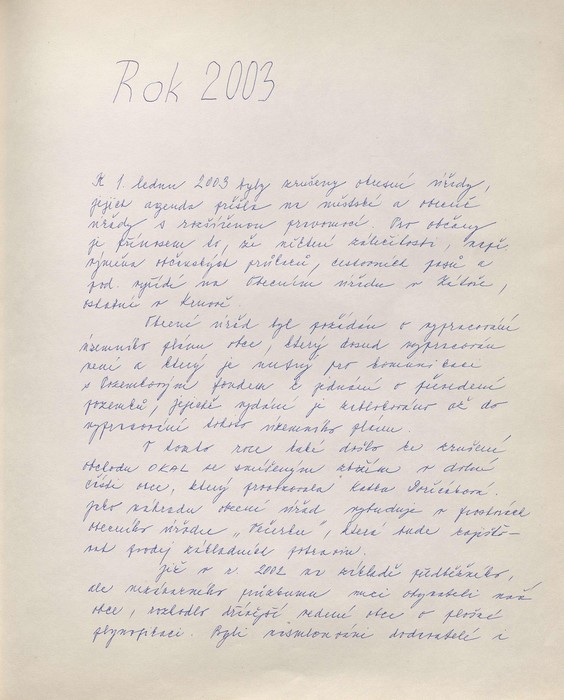 Rok 2003
K 1. lednu 2003 byly zrušeny okresní úřady,
jejich agenda přešla na městské a obecné
úřady s rozšířenou pravomocí. Pro občany
je přínosem to, že některé záležitosti, např.
výměna občanských průkazů, cestovních pasů a
pod. vyřídí na Obecním úřadu v
ostatní v Krnově.
Obecní úřad byl požádán o vypracování
územního plánu obce, který dosud vypracován
není a který je nutný pro komunikaci
s Pozemkovým fondem k jednání o převedení
pozemků, jejichž vydání je zablokováno až do
vypracování tohoto územního plánu.
V tomto roce také došlo ke zrušení
obchodu OKAL se smíšeným zbožím v dolní
části obce, který provozovala Katka
Jako náhradu obecní úřad vybuduje v prostorách
obecního úřadu „Večerku", která bude zajišťo-
vat prodej základních potravin.
Již v r. 2002 na základě předběžného,
ale nezávazného průzkumu mezi obyvateli naší
obce, rozhodlo dřívější vedení obce o plošné
plynofikaci. Byli dodavatelé i